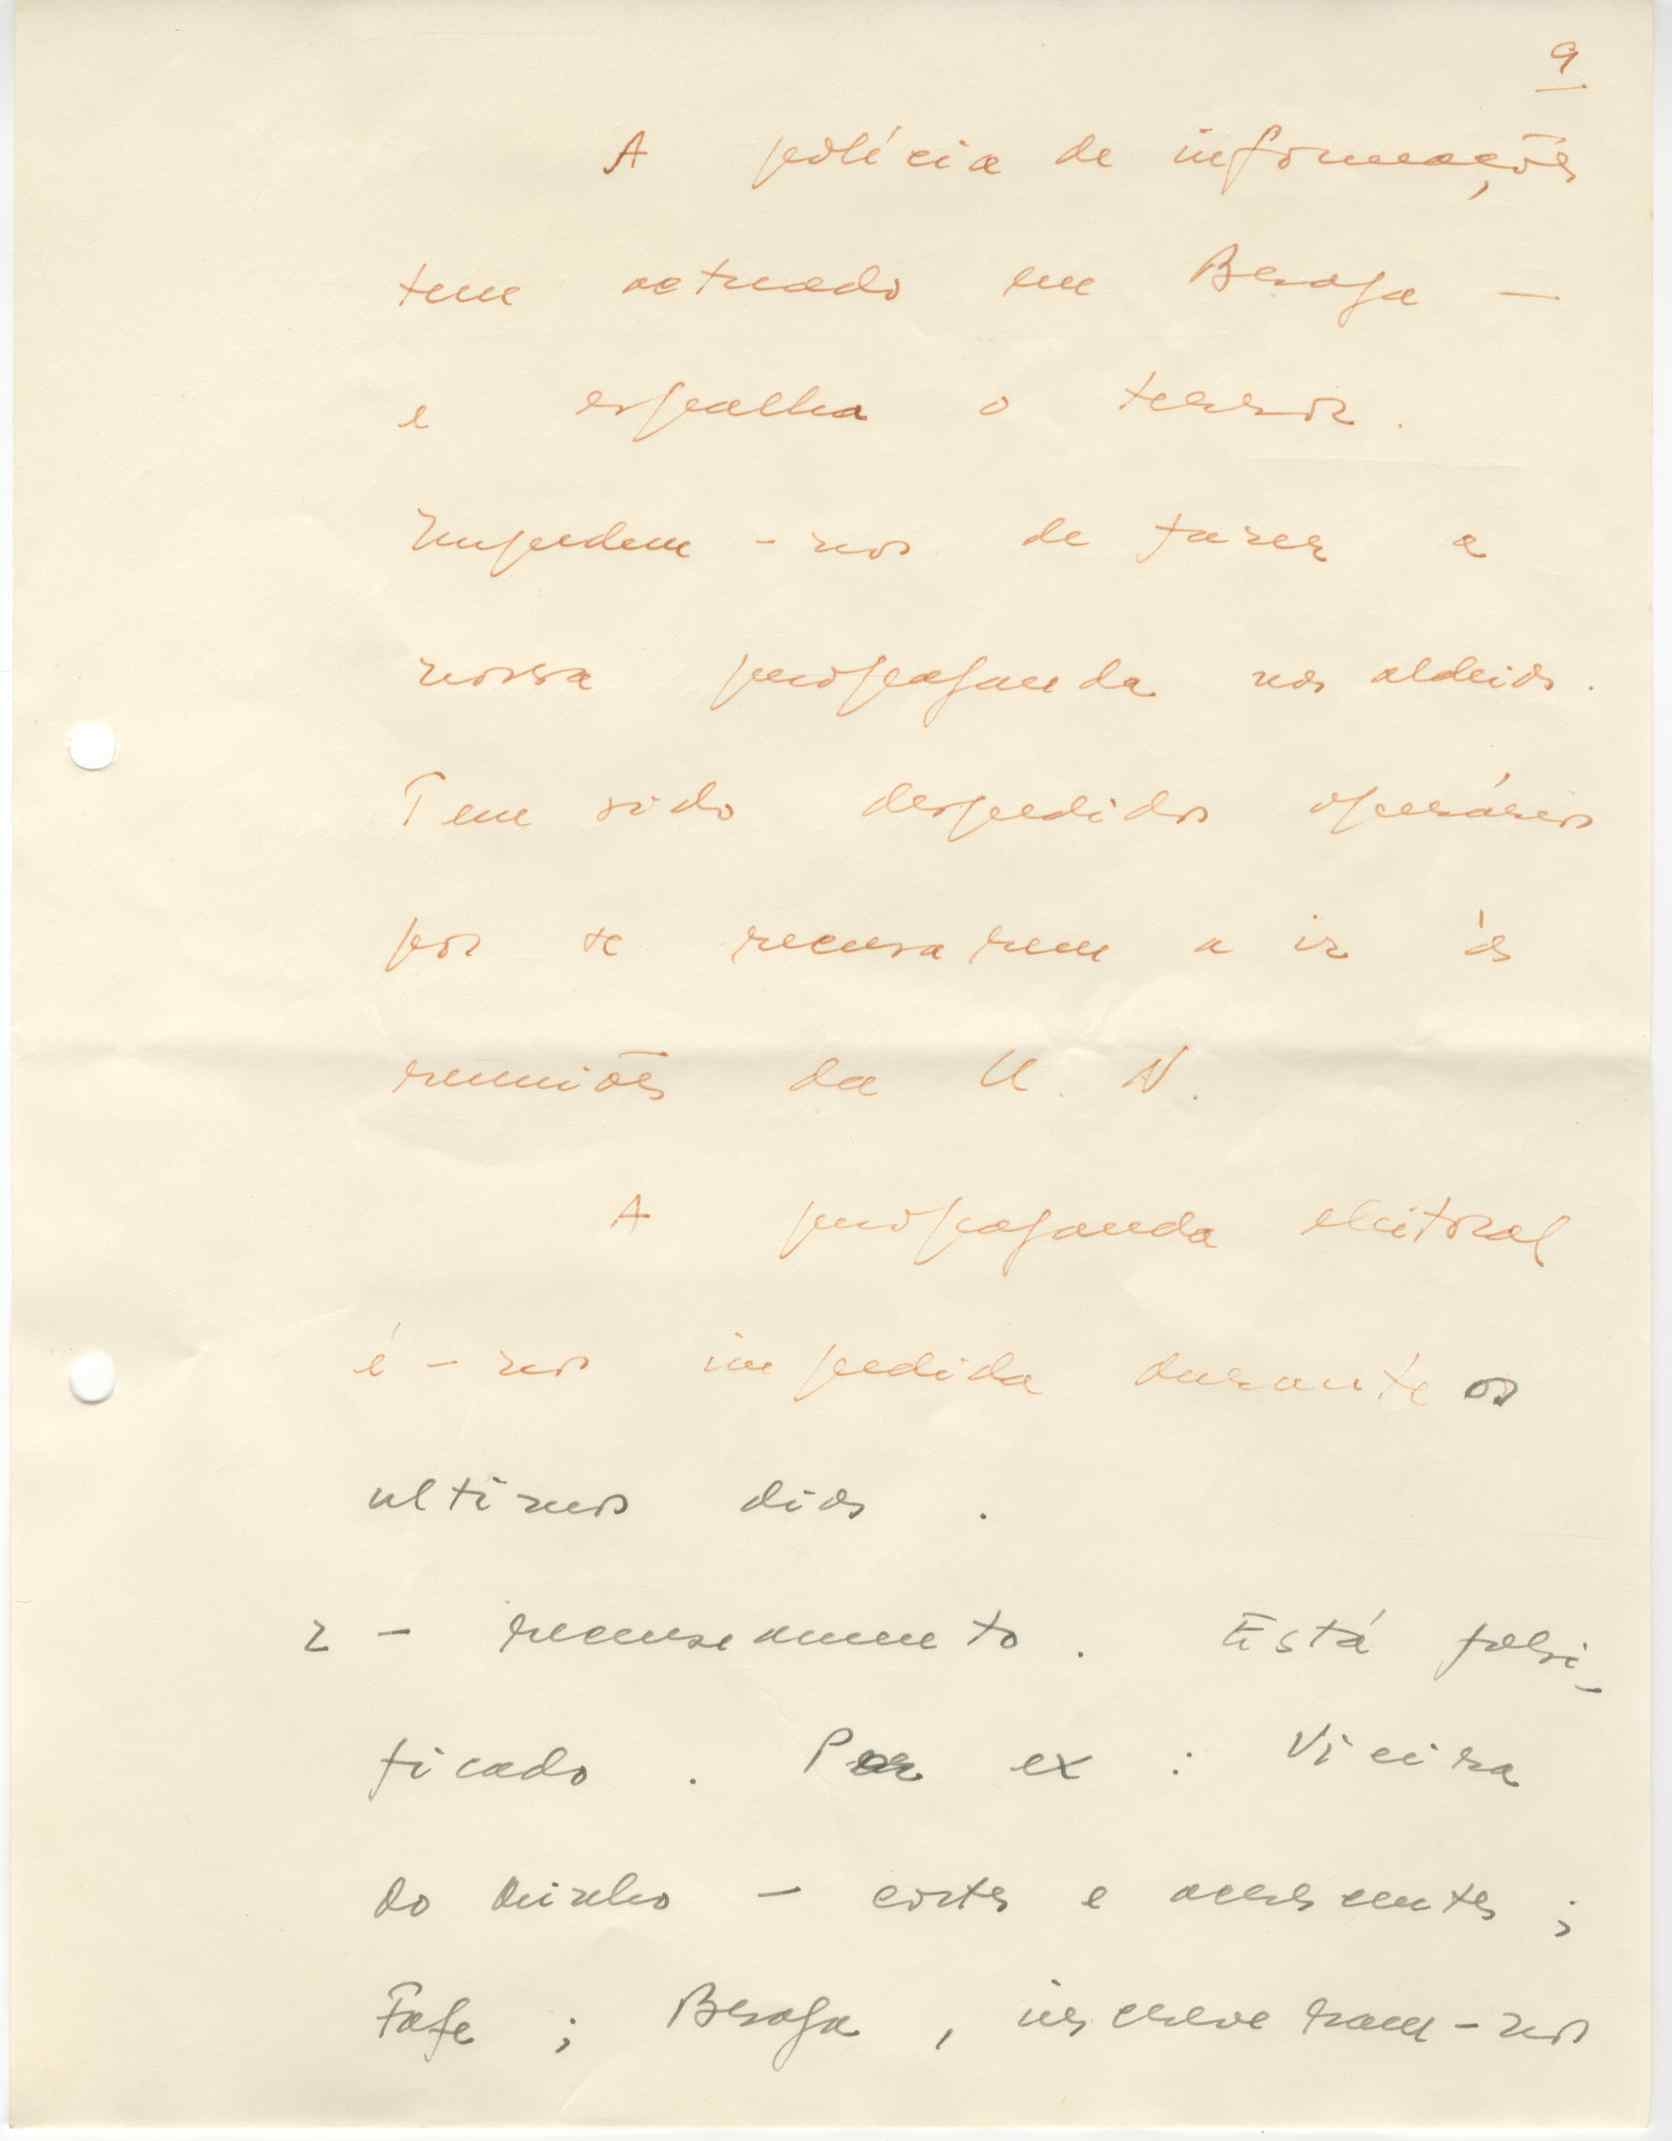 9
A polícia de informações
tem actuado em Braga —
e espalha o terror.
Impedem-nos de fazer a
nossa propaganda nas aldeias.
Tem sido despedidos operários
por se recusarem a ir às
reuniões da U. N.
A propaganda eleitoral
é-nos impedida durante os
ultimos dias.
2 - recenseamento. Está falsi-
ficado. Por ex: Vieira
do Minho - cortes e acrescentes;
Fafe; Braga, inscreveram-nos